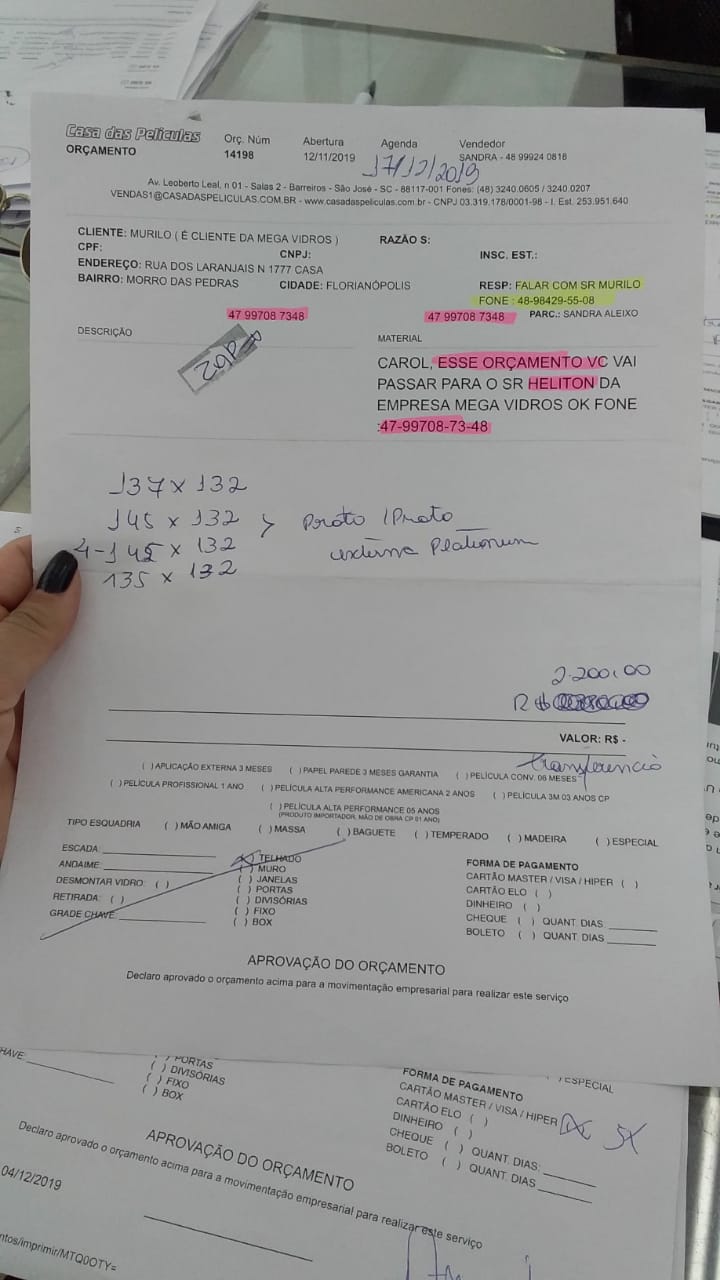 Casa das Películas
ORÇAMENTO
Orç. Núm
14198
Abertura
12/11/2019
Agenda
17/12/2019
Vendedor
SANDRA - 48 99924 0818
Av. Leoberto Leal, n 01 - Salas 2 - Barreiros - São José - SC - 88117-001 Fones: (48) 3240.0605 / 3240.0207
VENDAS1@CASADASPELICULAS.COM.BR - www.casadaspeliculas.com.br - CNPJ 03.319.178/0001-98 - I. Est. 253.951.640
CLIENTE: MURILO ( É CLIENTE DA MEGA VIDROS )
RAZÃO S:
CPF:
CNPJ:
INSC. EST.:
ENDEREÇO: RUA DOS LARANJAIS N 1777 CASA
BAIRRO: MORRO DAS PEDRAS
CIDADE: FLORIANÓPOLIS
RESP: FALAR COM SR MURILO
FONE : 48-98429-55-08
47 99708 7348
47 99708 7348
PARC.: SANDRA ALEIXO
DESCRIÇÃO
MATERIAL
CAROL, ESSE ORÇAMENTO VC VAI
PASSAR PARA O SR HELITON DA
EMPRESA MEGA VIDROS OK FONE
:47-99708-73-48
137 x 132
145 x 132 > Prata / Prata
4-145 x 132 externa Platinum
135 x 132
2.200,00
R$
VALOR: R$ -
transferencia
( ) APLICAÇÃO EXTERNA 3 MESES ( ) PAPEL PAREDE 3 MESES GARANTIA ( ) PELÍCULA CONV. 06 MESES
( ) PELÍCULA PROFISSIONAL 1 ANO ( ) PELÍCULA ALTA PERFORMANCE AMERICANA 2 ANOS ( ) PELÍCULA 3M 03 ANOS CP
( ) PELÍCULA ALTA PERFORMANCE 05 ANOS
(PRODUTO IMPORTADOR, MÃO DE OBRA CP 01 ANO)
TIPO ESQUADRIA ( ) MÃO AMIGA ( ) MASSA ( ) BAGUETE ( ) TEMPERADO ( ) MADEIRA ( ) ESPECIAL
ESCADA:
ANDAIME:
DESMONTAR VIDRO: ( )
RETIRADA: ( )
GRADE CHAVE:
(X) TELHADO
( ) MURO
( ) JANELAS
( ) PORTAS
( ) DIVISÓRIAS
( ) FIXO
( ) BOX
FORMA DE PAGAMENTO
CARTÃO MASTER / VISA / HIPER ( )
CARTÃO ELO ( )
DINHEIRO ( )
CHEQUE ( ) QUANT. DIAS:
BOLETO ( ) QUANT. DIAS
APROVAÇÃO DO ORÇAMENTO
Declaro aprovado o orçamento acima para a movimentação empresarial para realizar este serviço
HAVE:
( ) PORTAS
( ) DIVISÓRIAS
( ) FIXO
( ) BOX
( ) ESPECIAL
FORMA DE PAGAMENTO
CARTÃO MASTER / VISA / HIPER 5X
CARTÃO ELO ( )
DINHEIRO ( )
CHEQUE ( ) QUANT. DIAS:
BOLETO ( ) QUANT. DIAS
APROVAÇÃO DO ORÇAMENTO
Declaro aprovado o orçamento acima para a movimentação empresarial para realizar este serviço
04/12/2019
ntos/imprimir/MTQ0OTY=